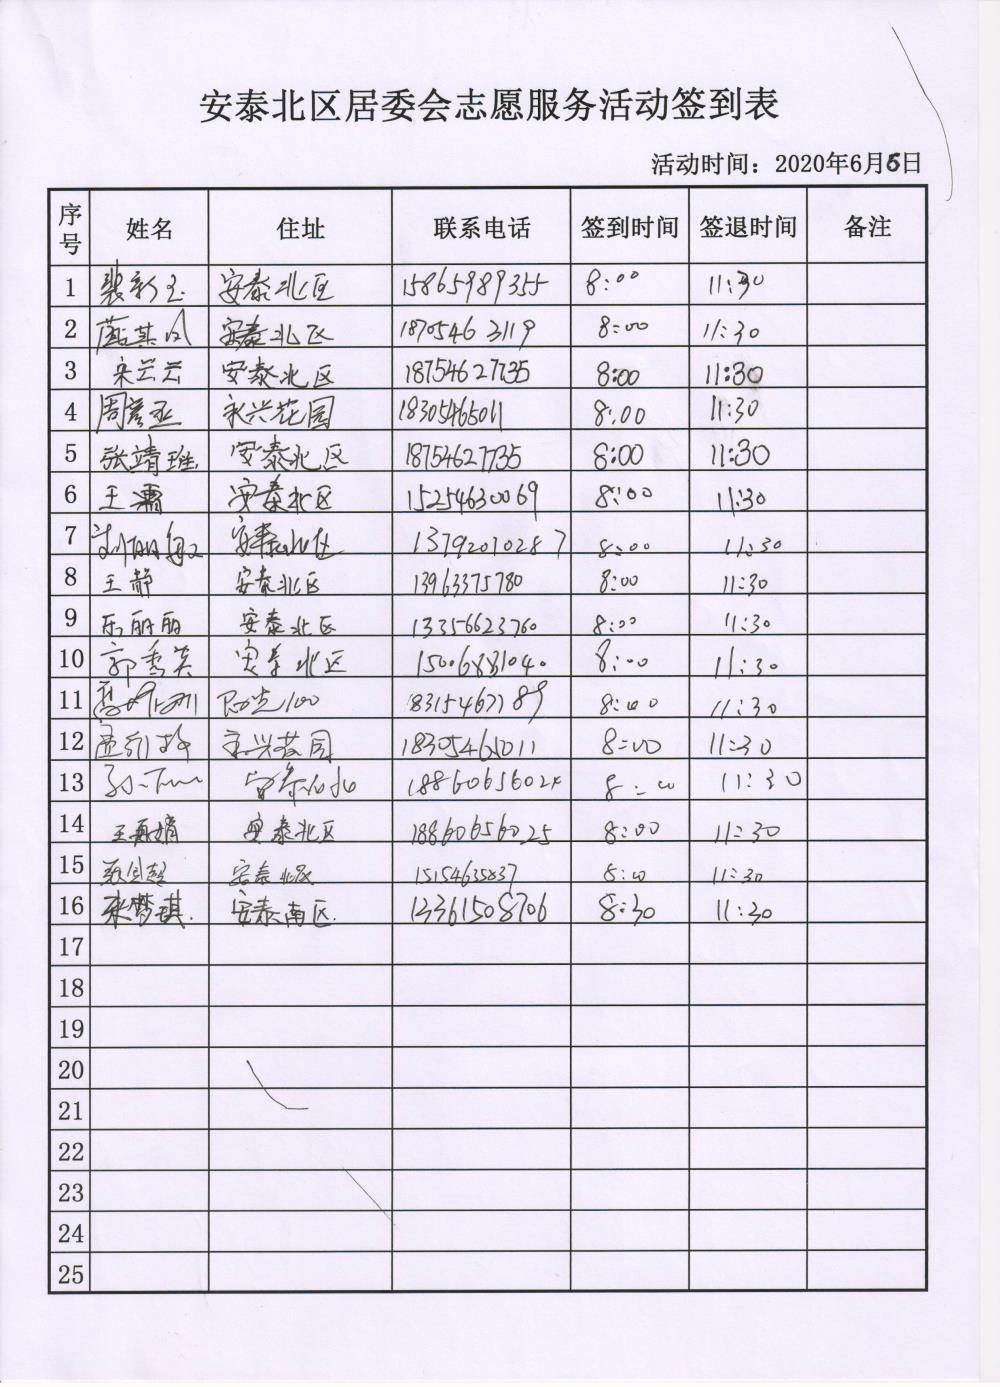 安泰北区居委会志愿服务活动签到表
活动时间：2020年6月5日
序号 姓名 住址 联系电话 签到时间 签退时间 备注
1 裴新玉 安泰北区 15865989355 8:00 11:30
2 其凤 安泰北区 18705463119 8:00 11:30
3 宋兰芸 安泰北区 18754627735 8:00 11:30
4 周彦亚 永兴花园 18305465011 8:00 11:30
5 张靖雅 安泰北区 18754627735 8:00 11:30
6 王潇 安泰北区 15254630069 8:00 11:30
7 刘丽敏 安泰北区 13792010287 8:00 11:30
8 王静 安泰北区 13963375780 8:00 11:30
9 乐丽丽 安泰北区 13356623760 8:00 11:30
10 郭秀英 安泰北区 15006831040 8:00 11:30
11 100 18315467189 8:00 11:30
12 永兴花园 18305465011 8:00 11:30
13 孙 18860656024 8:00 11:30
14 王真婧 安泰北区 18860656025 8:00 11:30
15 安泰北区 15154635837 8:00 11:30
16 张梦琪 安泰南区 13361508706 8:30 11:30
17
18
19
20
21
22
23
24
25